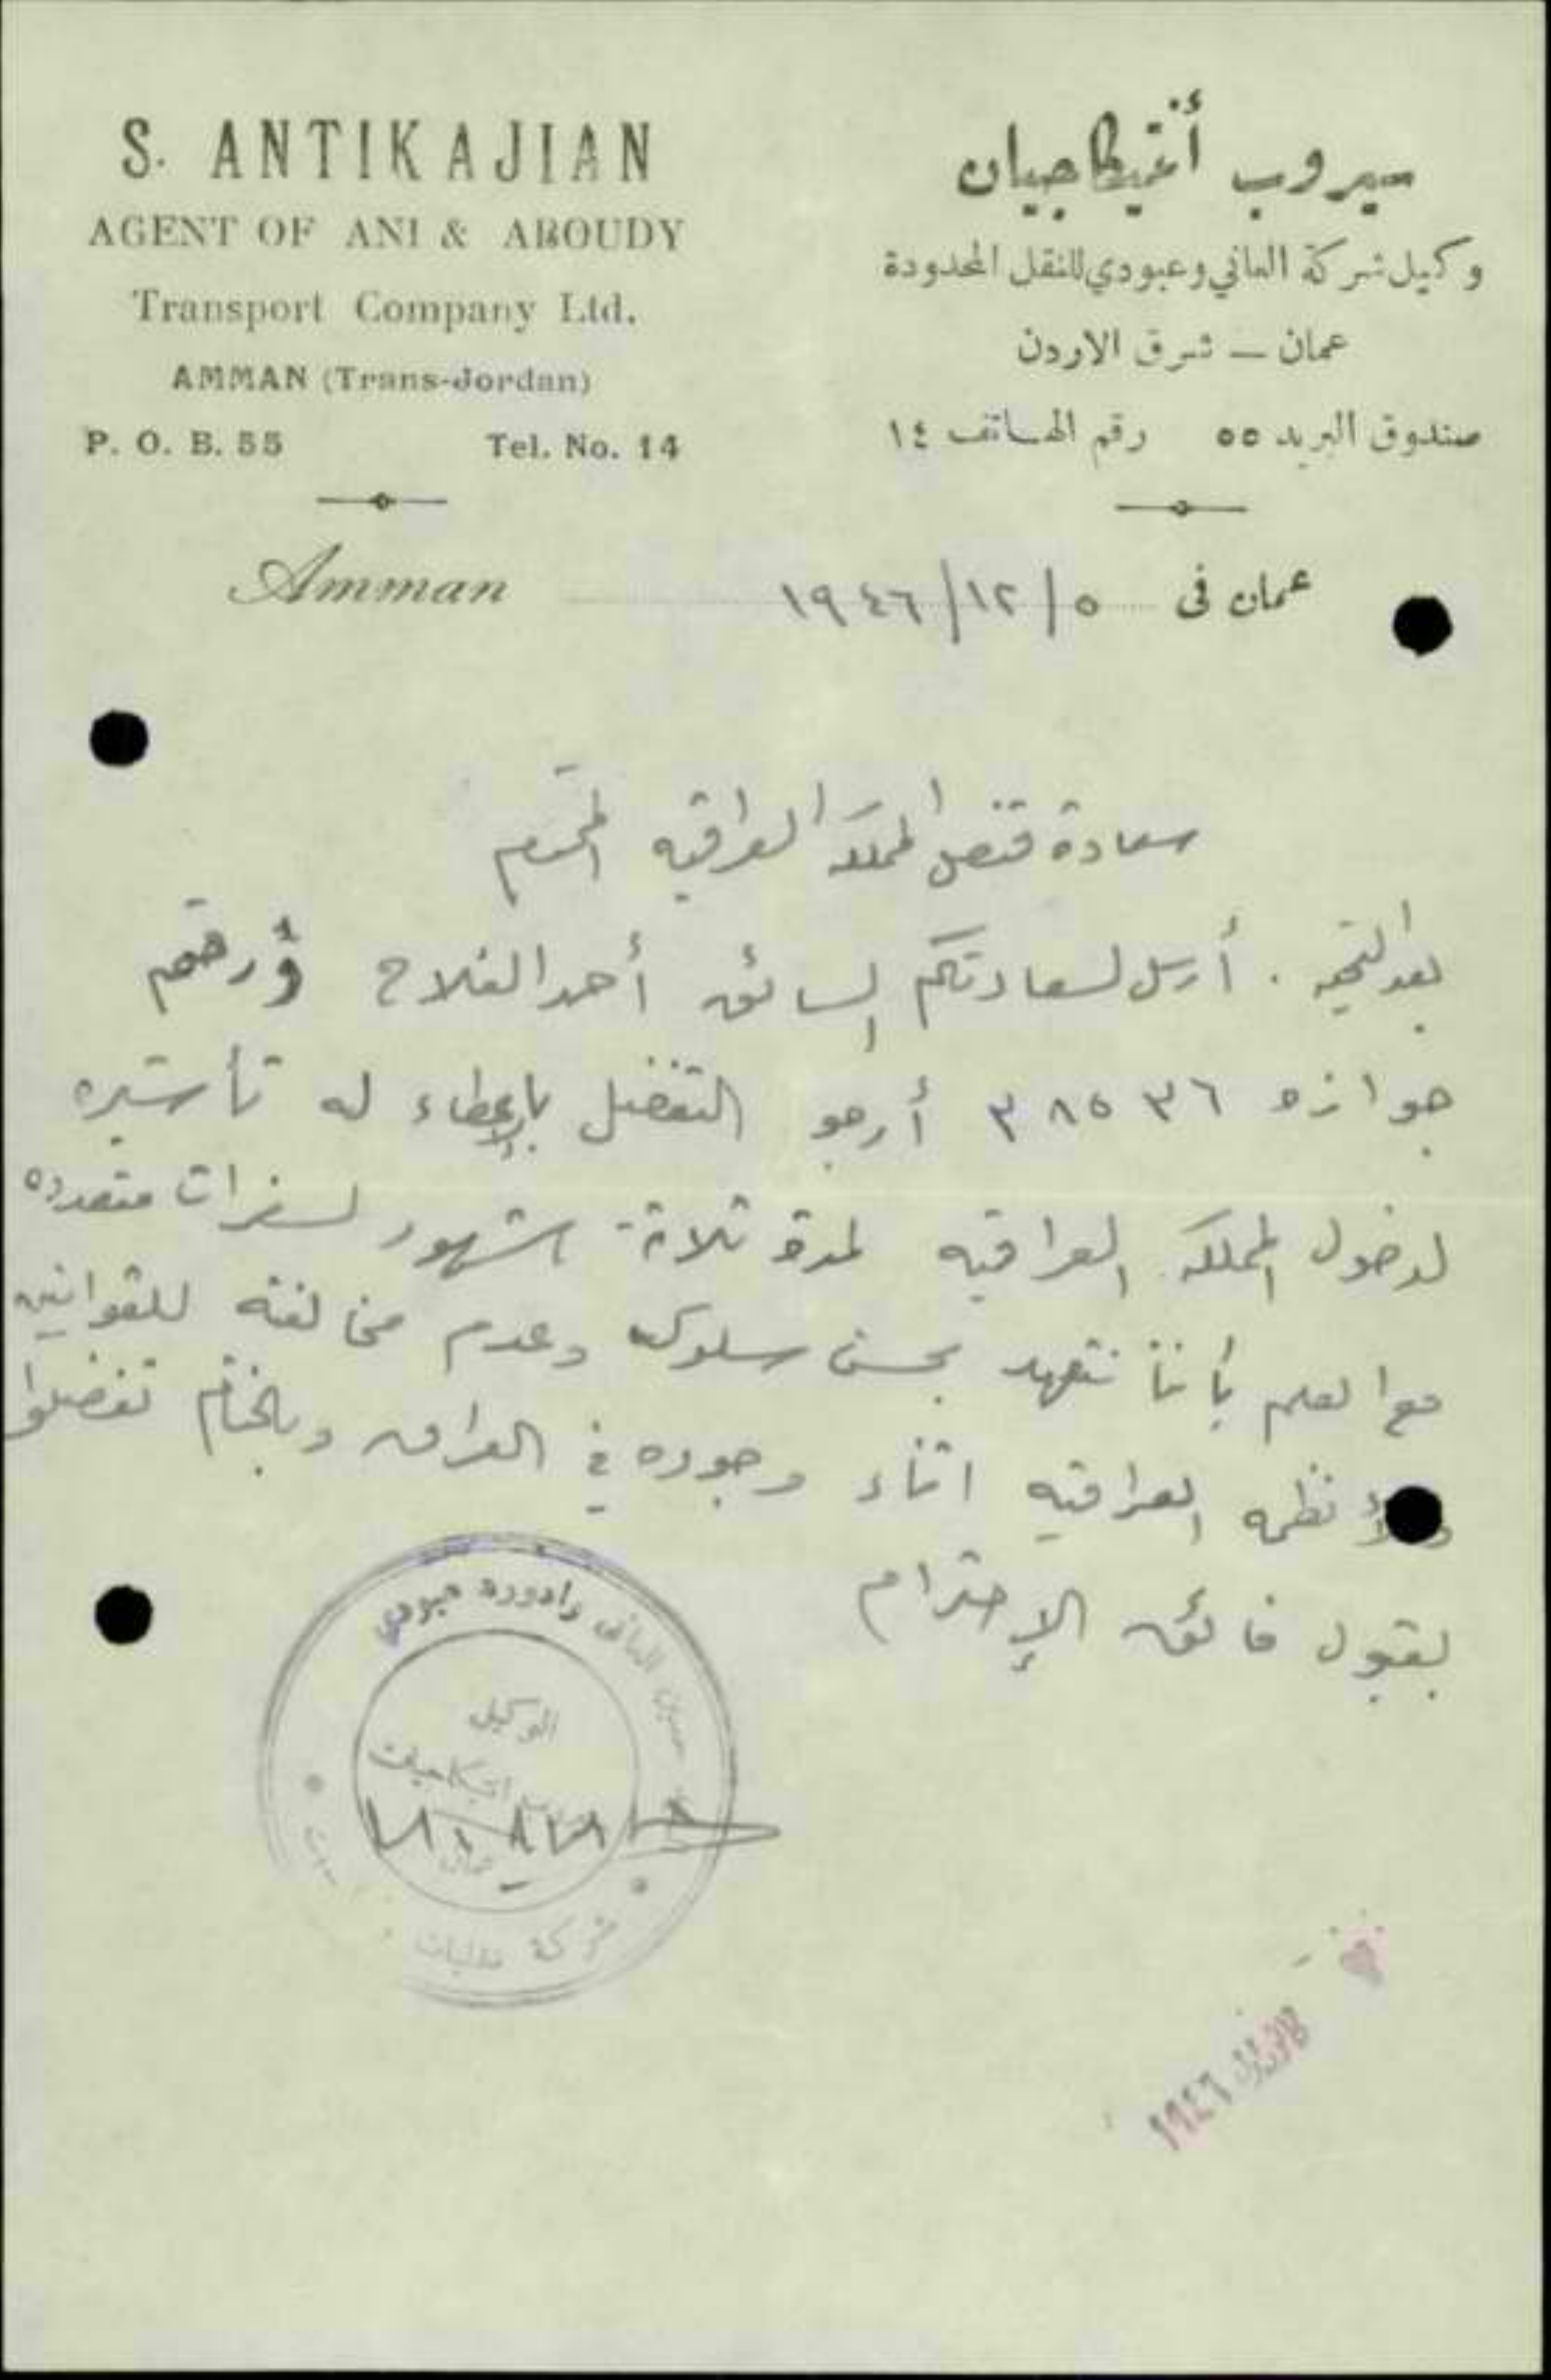 S. ANTIKAJIAN
AGENT OF ANI & ABOUDY
Transport Company Ltd.
AMMAN (Trans-Jordan)
P. O. B. 55 Tel. No. 14
سيروب أنتيكاجيان
وكيل شركة العاني وعبودي للنقل المحدودة
عمان — شرق الاردن
صندوق البريد ٥٥ رقم الهاتف ١٤
Amman
عمان في ٥/١٢/١٩٤٦
سعادة قنصل المملكه العراقيه المحترم
بعد التحيه . أرسل لسعادتكم السائق أحمد الفلاح ورقم
جوازه ٣٨٥٣٦ أرجو التفضل بإعطاء له تأشيره
لدخول المملكه العراقيه لمدة ثلاثة اشهر لسفرات متعدده
مع العلم بأننا نتعهد بحسن سلوكه وعدم مخالفته للقوانين
والأنظمه العراقيه اثناء وجوده في العراق وبالختام تفضلوا
بقبول فائق الإحترام
العاني وادوره عبودي
شركة نقليات
الوكيل
انتيكاجيان
عمان
١٩٤٦